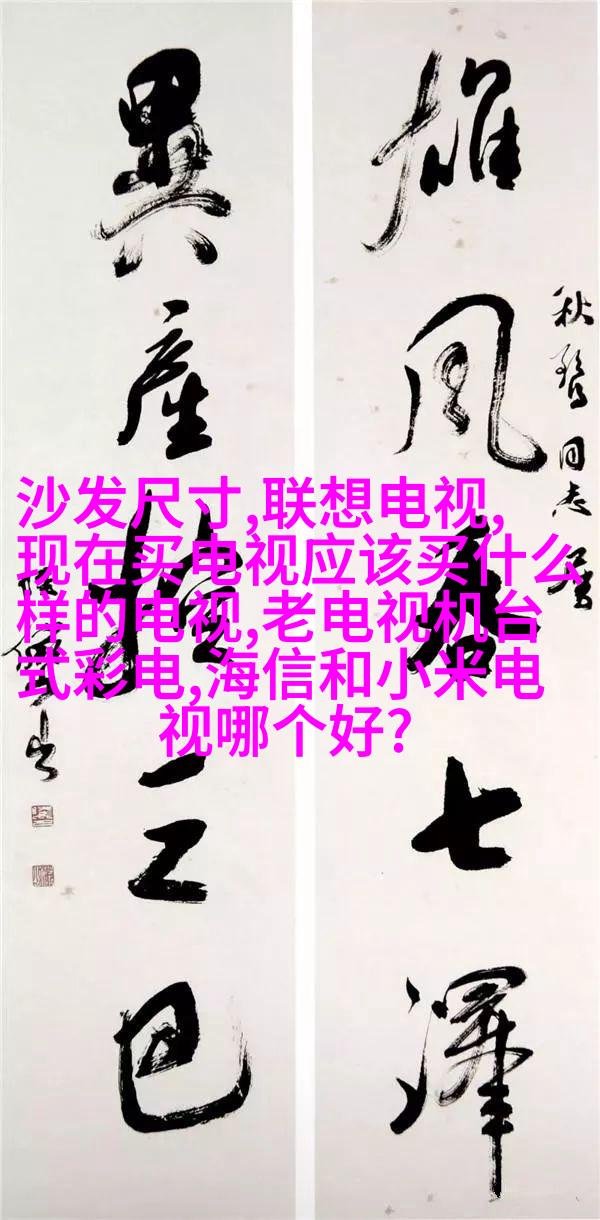 雄風七澤
秋同志
異產三巴
沙发尺寸,联想电视,
现在买电视应该买什么
样的电视,老电视机台
式彩电,海信和小米电
视哪个好?